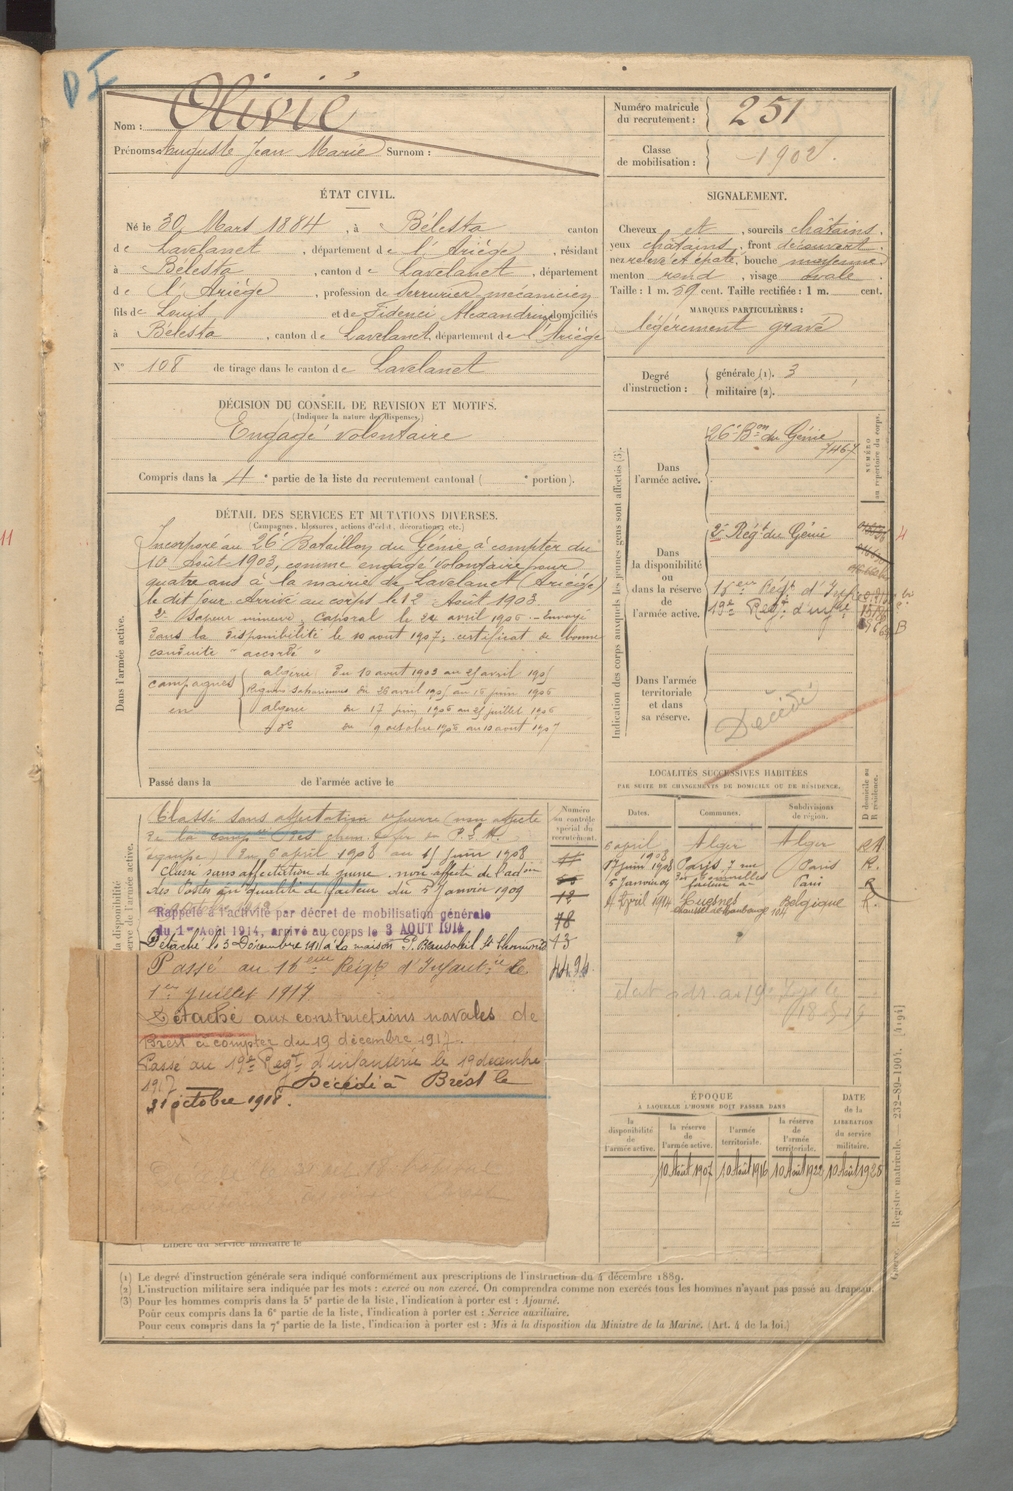 Nom : Olivié
Prénoms Auguste Jean Marie Surnom :
Numéro matricule du recrutement : 251
Classe de mobilisation : 1902.
ÉTAT CIVIL.
Né le 30 Mars 1884, à Bélesta canton
de Lavelanet, département de l'Ariége, résidant
à Bélesta, canton de Lavelanet, département
de l'Ariége, profession de serrurier mécanicien
fils de Louis et de Fidenci Alexandrine domiciliés
à Bélesta, canton de Lavelanet, département de l'Ariége
N° 108 de tirage dans le canton de Lavelanet
SIGNALEMENT.
Cheveux et, sourcils châtains.
yeux châtains, front découvert.
nez relevé et épaté, bouche moyenne
menton rond, visage ovale.
Taille : 1 m. 59 cent. Taille rectifiée : 1 m. cent.
MARQUES PARTICULIÈRES :
légèrement gravé
Degré d'instruction : générale (1). 3
militaire (2).
DÉCISION DU CONSEIL DE REVISION ET MOTIFS.
(Indiquer la nature des dispenses.)
Engagé volontaire
Compris dans la 4e partie de la liste du recrutement cantonal ( e portion).
DÉTAIL DES SERVICES ET MUTATIONS DIVERSES.
(Campagnes, blessures, actions d'éclat, décorations, etc.)
Dans l'armée active.
Incorporé au 26e Bataillon du Génie à compter du
10 Août 1903, comme engagé volontaire pour
quatre ans à la mairie de Lavelanet (Ariége)
le dit jour Arrivé au corps le 12 Août 1903
2e Sapeur mineur, Caporal le 24 avril 1905 - Envoyé
dans la disponibilité le 10 août 1907; certificat de bonne
conduite "accordé"
campagnes algérie du 10 août 1903 au 25 avril 1905
Régions Sahariennes du 26 avril 1905 au 16 juin 1906
en algérie du 17 juin 1906 au 25 juillet 1906
do du 9 octobre 1906 au 10 août 1907
Passé dans la de l'armée active le
Indication des corps auxquels les jeunes gens sont affectés (3).
NUMÉRO au répertoire du corps.
Dans l'armée active.
26e Bon du Génie 7467
Dans la disponibilité ou dans la réserve de l'armée active.
2e Régt du Génie
16em Régt d'Infie
19e Régt d'infie
Dans l'armée territoriale et dans sa réserve.
Décédé
Classé sans affectation
équipe) du 6 avril 1908 au 15 juin 1908
Classé sans affectation de guerre. non affecté de l'admon
des Postes en qualité de facteur du 5 Janvier 1909
Rappelé à l'activité par décret de mobilisation générale
du 1er Août 1914, arrivé au corps le 3 AOUT 1914
Passé au 16eme Régt d'Infantie le
1er Juillet 1917
Détaché aux constructions navales de
Brest à compter du 19 décembre 1917.
Passé au 19e Régt d'infanterie le 19 décembre
1917 Décédé à Brest le
31 octobre 1918.
Numéro au contrôle spécial du recrutement.
12
18
13
4494
LOCALITÉS SUCCESSIVES HABITÉES
PAR SUITE DE CHANGEMENTS DE DOMICILE OU DE RÉSIDENCE.
Dates. Communes. Subdivisions de région. D domicile ou R résidence.
6 avril 1908 Alger Alger R
15 juin 1908 Paris, 7 rue Paris R.
5 Janvier 09 facteur à Paris R
4 Avril 1914 Belgique R.
ÉPOQUE
À LAQUELLE L'HOMME DOIT PASSER DANS
la disponibilité de l'armée active.
la réserve de l'armée active.
l'armée territoriale.
la réserve de l'armée territoriale.
DATE de la LIBÉRATION du service militaire.
10 Août 1907 10 Août 1916 10 Août 1922 10 Août 1928
Libéré du service militaire le
Registre matricule. — 232-89-1904. [4194]
(1) Le degré d'instruction générale sera indiqué conformément aux prescriptions de l'instruction du 4 décembre 1889.
(2) L'instruction militaire sera indiquée par les mots : exercé ou non exercé. On comprendra comme non exercés tous les hommes n'ayant pas passé au drapeau.
(3) Pour les hommes compris dans la 5e partie de la liste, l'indication à porter est : Ajourné.
Pour ceux compris dans la 6e partie de la liste, l'indication à porter est : Service auxiliaire.
Pour ceux compris dans la 7e partie de la liste, l'indication à porter est : Mis à la disposition du Ministre de la Marine. (Art. 4 de la loi.)